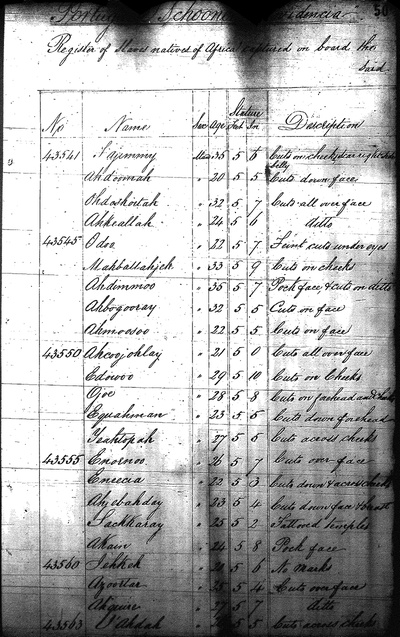 Schoone 50
Register of Slaves natives of Africa captured on board the
said
No Name Sex Age Stature Feet In Description
43541 35 5 6 Cuts on cheeks scar right side
belly
Ahdoomah " 20 5 5 Cuts down face
Ohdoshoitah " 32 5 7 Cuts all over face
Ahkeallah " 24 5 6 ditto
43545 Odoo " 22 5 7 Feint cuts under eyes
Mahballahjeh " 33 5 9 Cuts on cheeks
Ahdimmoo " 35 5 7 Pock face & cuts on ditto
Ahbogooray " 32 5 5 Cuts on face
Ahmoosoo " 22 5 5 Cuts on face
43550 Ahcoojohlay " 21 5 0 Cuts all over face
Edowoo " 29 5 10 Cuts on Cheeks
Ojoe " 28 5 8 Cuts on forhead and
Equahman " 23 5 5 Cuts down forehead
Yeahtopah " 27 5 6 Cuts across cheeks
43555 " 26 5 7 Cuts over face
Eneecia " 22 5 3 Cuts down & across cheeks
Ahjebahday " 23 5 4 Cuts down face & breast
Sackharay " 25 5 2 Tattooed temples
Akain " 24 5 8 Pock face
43560 Jehkeh " 21 5 6 No marks
" 25 5 4 Cuts over face
" 27 5 7 ditto
43563 5 5 Cuts across cheeks